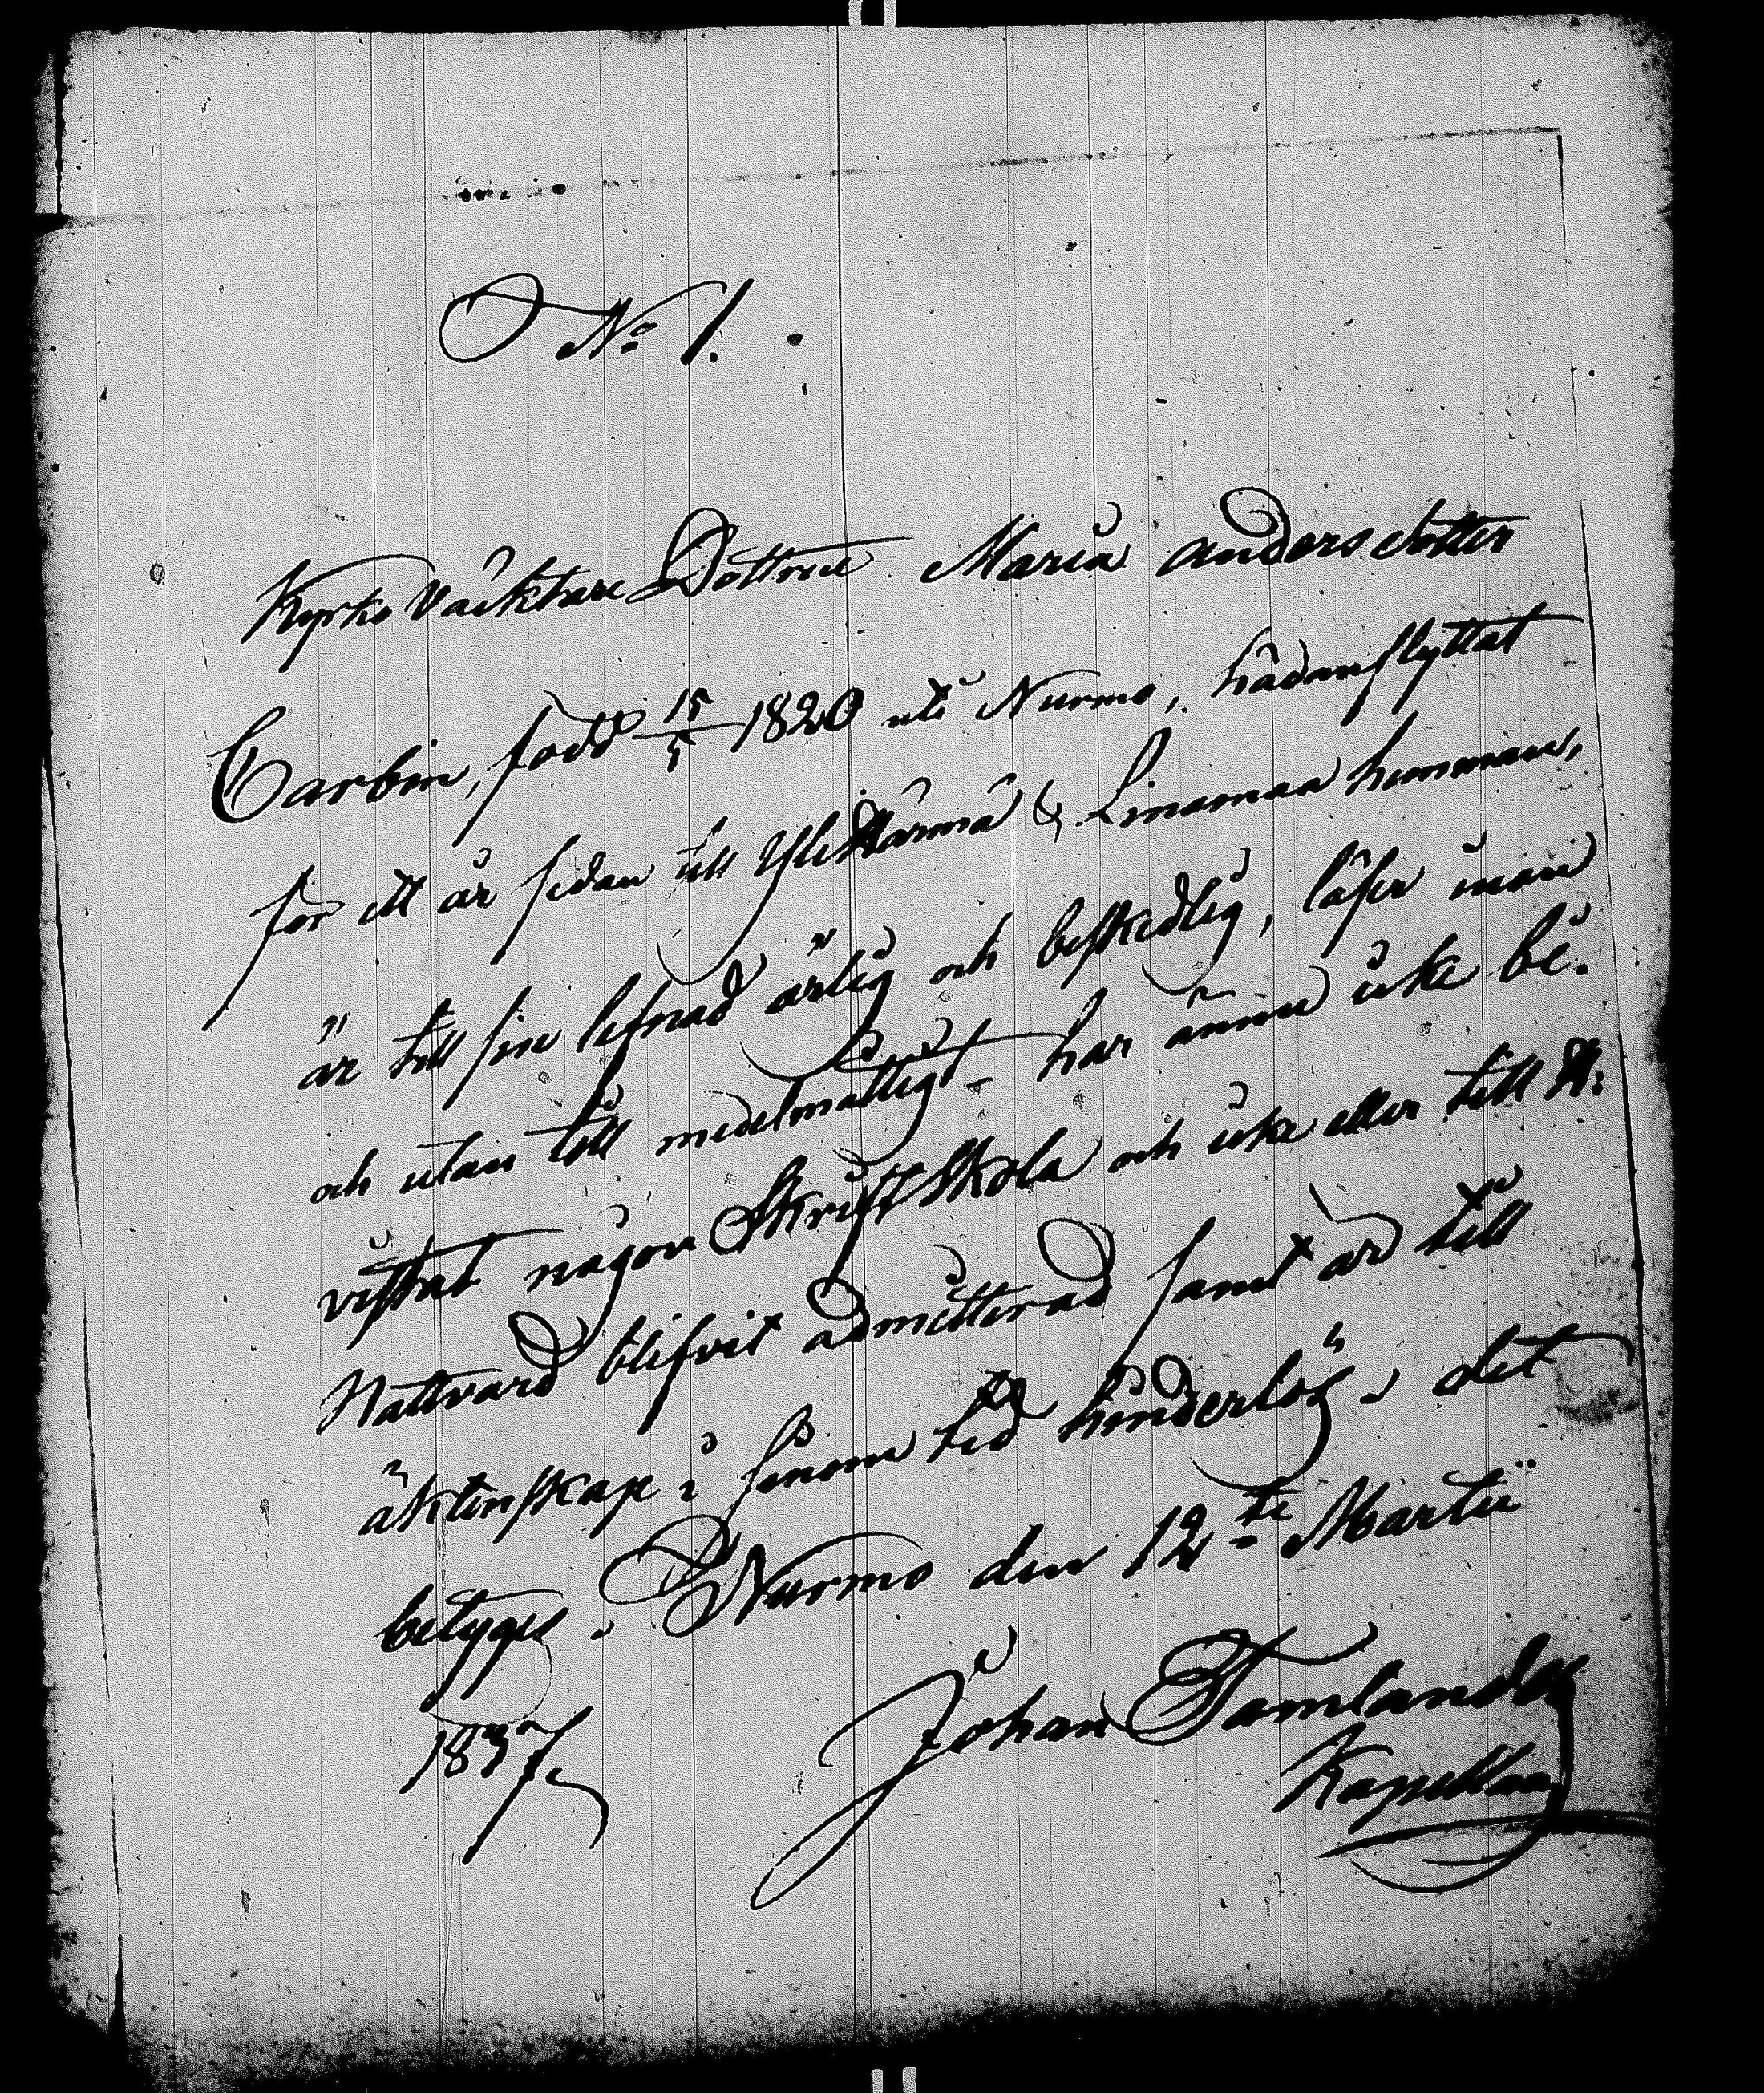 No 1.
Kyrko Väcktare Dottren Maria Andersdotter
Carbin, född 15/5 1820 uti Nurmo, hädanflyttat
för ett år sedan till Ylihärmä & Linamaa hemman,
är till sin lefnad ärlig och beskedlig, läser innan
och utan till medelmåttigt har ännu icke be-
vistat någon Skriftskola och icke eller till H:
Nattvard blifvit admitterad samt är till
äktenskap i sinom tid hinderlös, det
betyges. Nurmo den 12te Martii
1837. Johan Tamlander
Kapellan